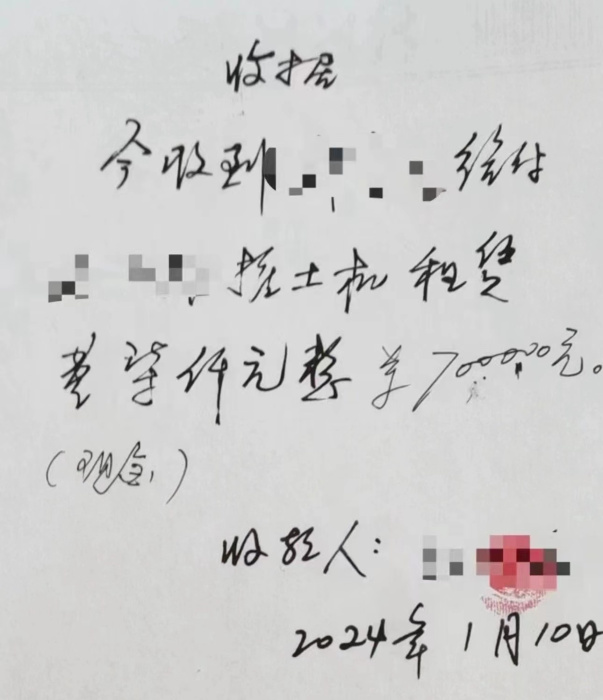 收据
今收到 给付
挖土机租赁
费柒仟元整 ¥7000.00元。
(现金)
收款人:
2024年1月10日